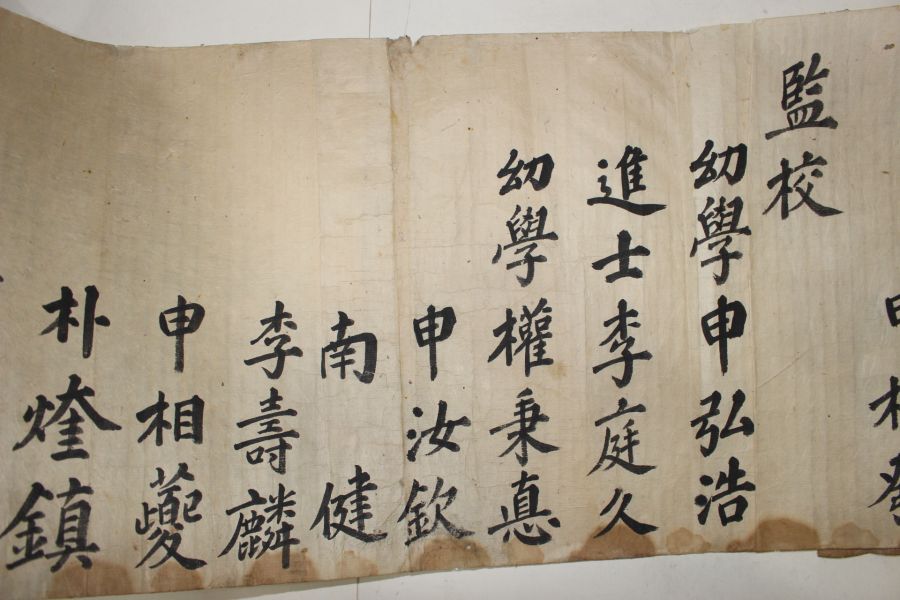 監校
幼學申弘浩
進士李庭久
幼學權秉悳
申汝欽
南健
李壽麟
申相蘷
朴煃鎮